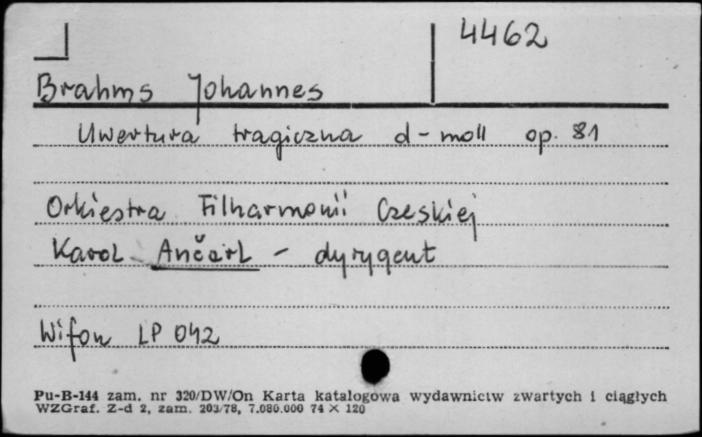 4462
Brahms Johannes
Uwertura tragiczna d-moll op. 81
Orkiestra Filharmonii Czeskiej
Karol Ančerl - dyrygent
Wifon LP 042
Pu-B-144 zam. nr 320/DW/On Karta katalogowa wydawnictw zwartych i ciągłych
WZGraf. Z-d 2, zam. 203/78, 7.080.000 74 × 120